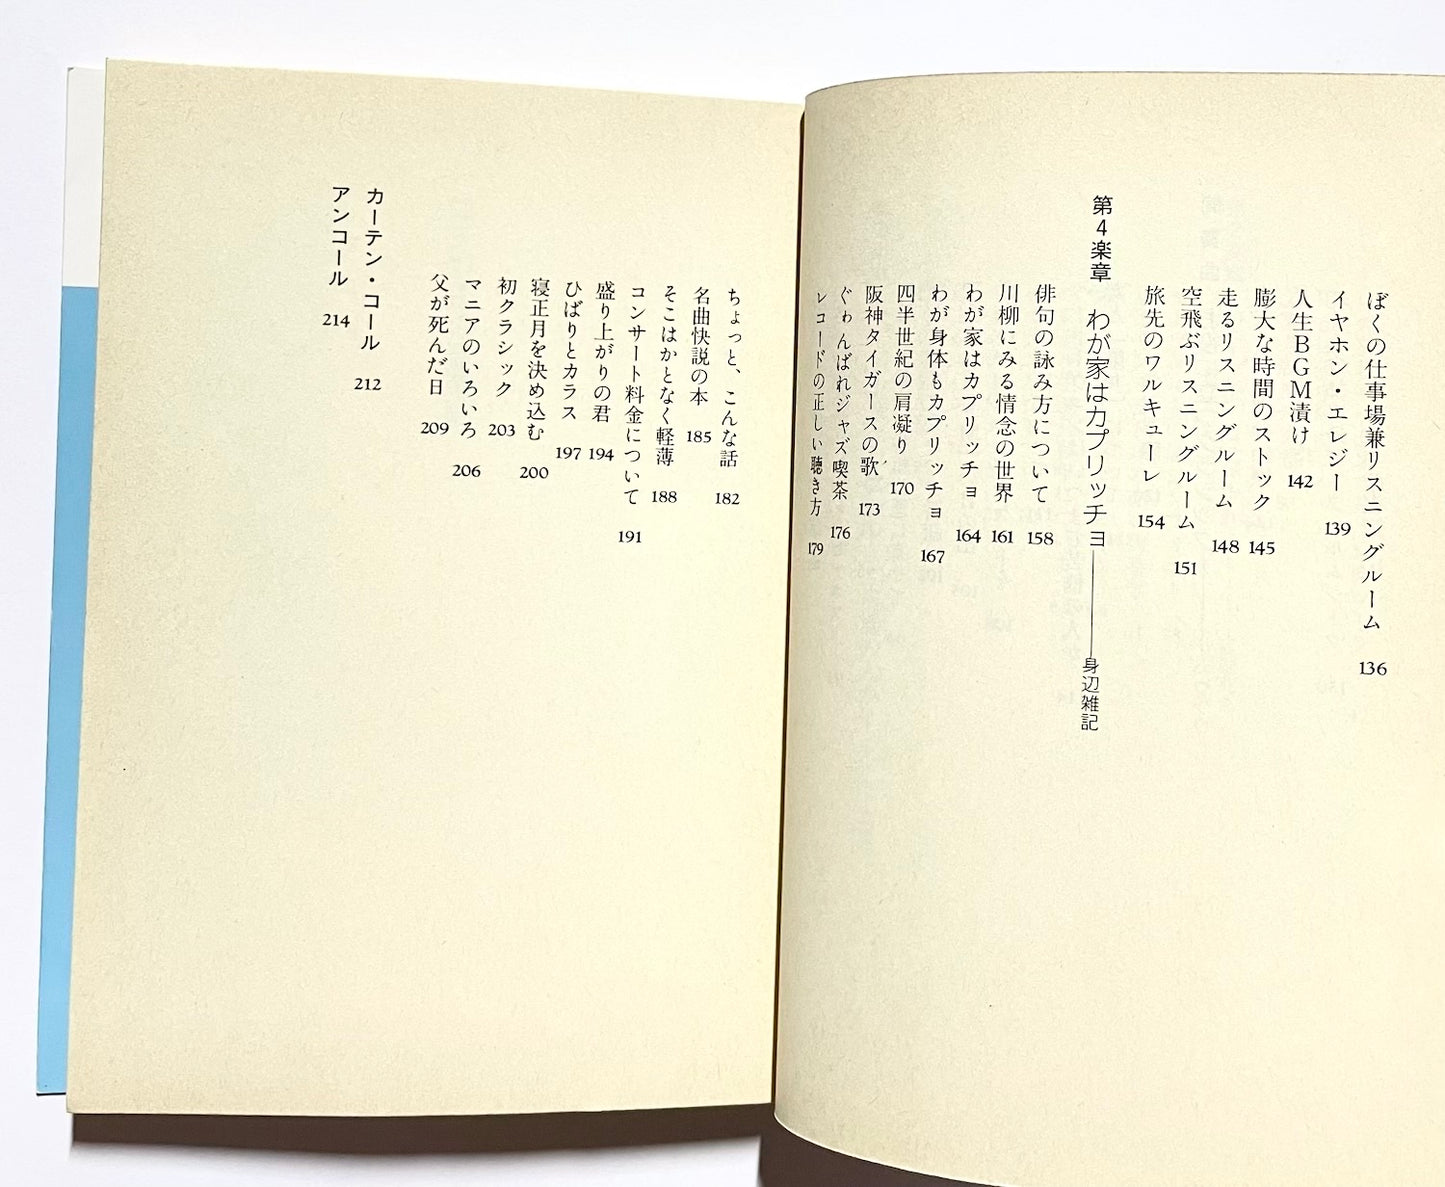 ぼくの仕事場兼リスニングルーム 136
イヤホン・エレジー 139
人生BGM漬け 142
膨大な時間のストック 145
走るリスニングルーム 148
空飛ぶリスニングルーム 151
旅先のワルキューレ 154
第4楽章 わが家はカプリッチョ――身辺雑記
俳句の詠み方について 158
川柳にみる情念の世界 161
わが家はカプリッチョ 164
わが身体もカプリッチョ 167
四半世紀の肩凝り 170
阪神タイガースの歌 173
ぐゎんばれジャズ喫茶 176
レコードの正しい聴き方 179
ちょっと、こんな話 182
名曲快説の本 185
そこはかとなく軽薄 188
コンサート料金について 191
盛り上がりの君 194
ひばりとカラス 197
寝正月を決め込む 200
初クラシック 203
マニアのいろいろ 206
父が死んだ日 209
カーテン・コール 212
アンコール 214